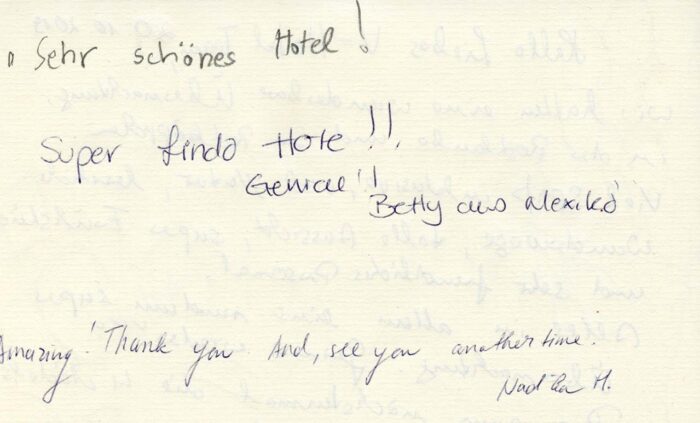 Sehr schönes Hotel!
Super lindo Hote!!.
Genial!!
Betty aus Mexiko
Amazing! Thank you And, see you another time!
Nadia H.